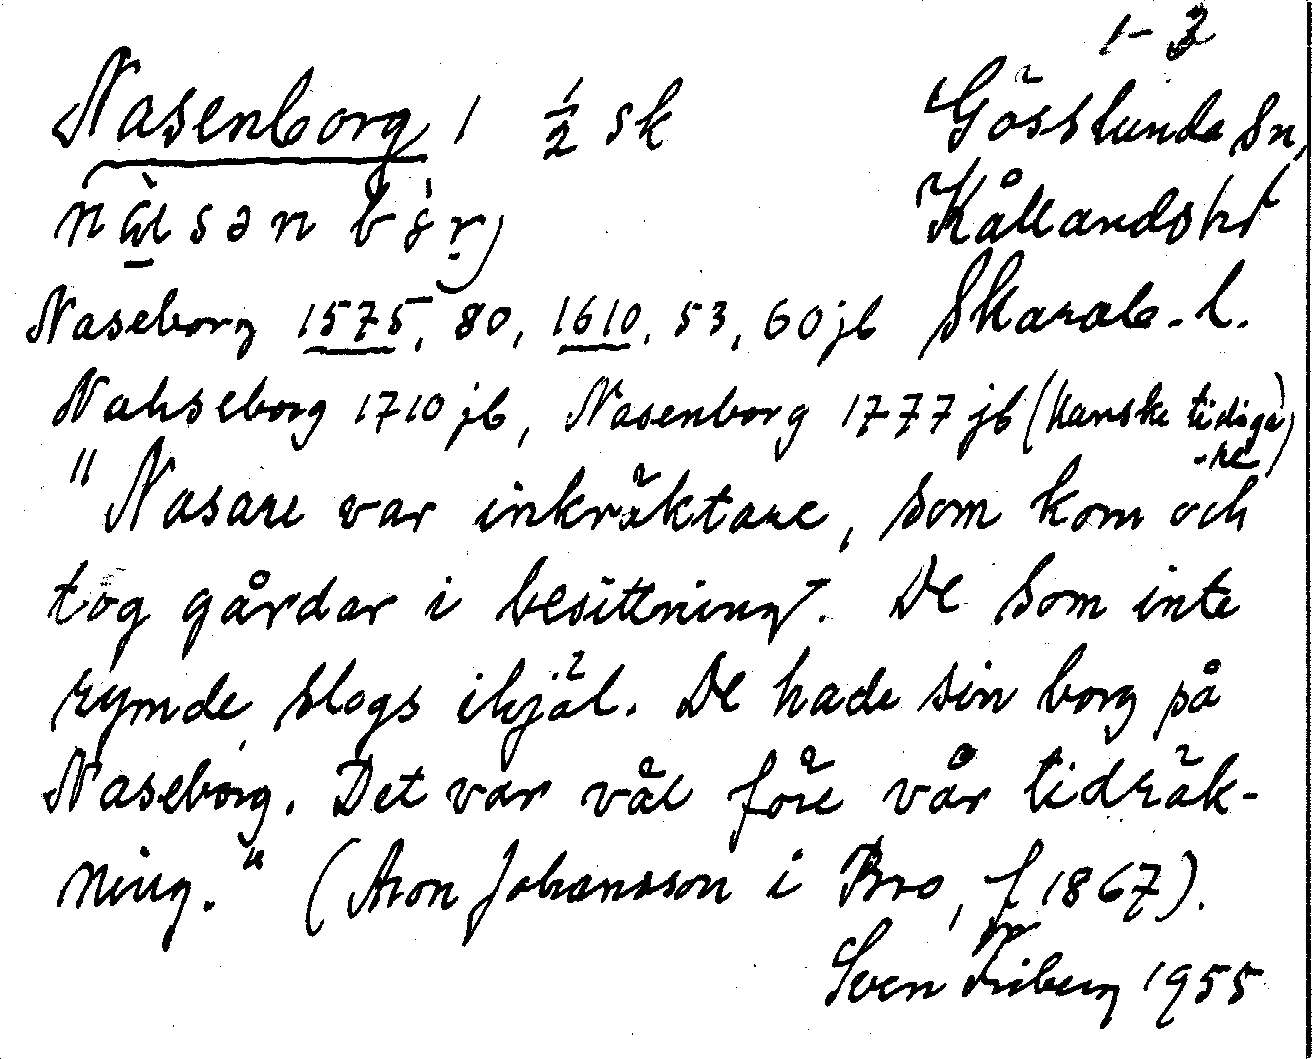 1-3
Nasenborg 1 1/2 sk
Gösslunda sn,
Kållandshd
Naseborg 1575, 80, 1610, 53, 60 jb
Skarab. l.
Nahseborg 1710 jb, Nasenborg 1777 jb (kanske tidiga-
-re)
"Nasare var inkräktare, som kom och
tog gårdar i besittning. De som inte
rymde slogs ihjäl. De hade sin borg på
Naseborg. Det var väl före vår tidräk-
ning." (Aron Johansson i Bro, f 1867).
Sven Friberg 1955